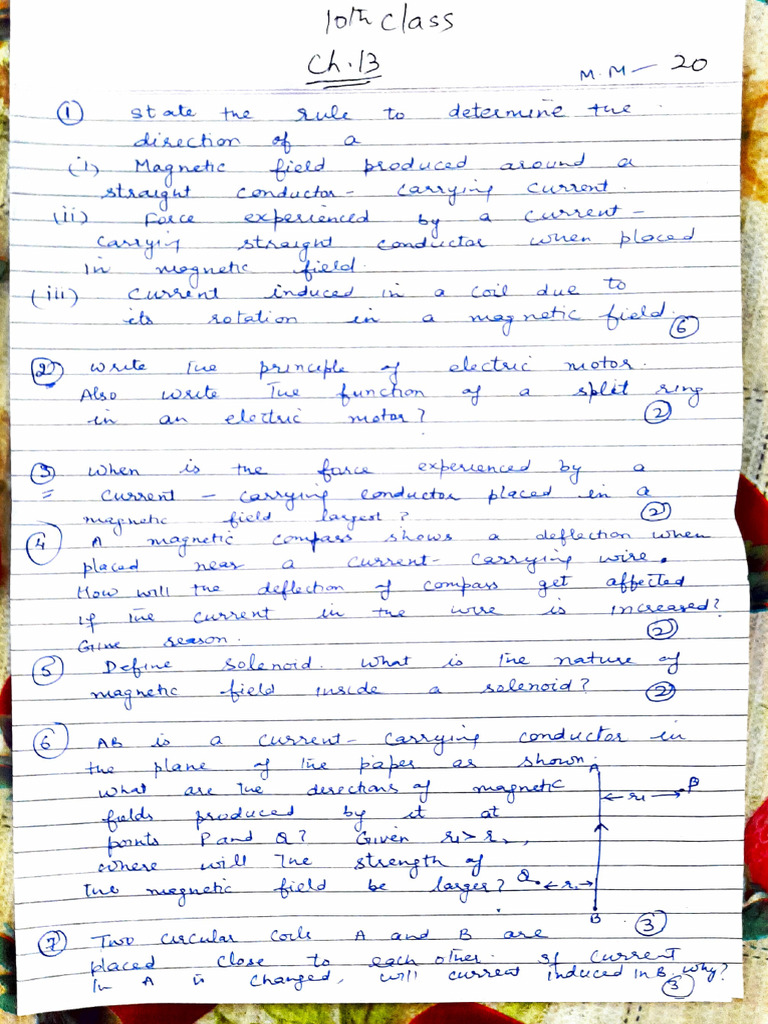 10th class
Ch.13
M.M — 20
① state the rule to determine the
direction of a
(i) Magnetic field produced around a
straight conductor - carrying current.
(ii) Force experienced by a current -
carrying straight conductor when placed
in magnetic field.
(iii) current induced in a coil due to
its rotation in a magnetic field. ⑥
② write the principle of electric motor.
Also write the function of a split ring
in an electric motor? ②
③ when is the force experienced by a
= current - carrying conductor placed in a
magnetic field largest? ②
④ A magnetic compass shows a deflection when
placed near a current - carrying wire.
How will the deflection of compass get affected
if the current in the wire is increased?
Give reason. ②
⑤ Define solenoid. what is the nature of
magnetic field inside a solenoid? ②
⑥ AB is a current - carrying conductor in
the plane of the paper as shown.
what are the directions of magnetic
fields produced by it at
points P and Q? Given r1 > r2,
where will the strength of
the magnetic field be larger?
A
← r1 → P
Q ← r →
B
③
⑦ Two circular coils A and B are
placed close to each other. If current
in A is changed, will current induced in B. why?
③